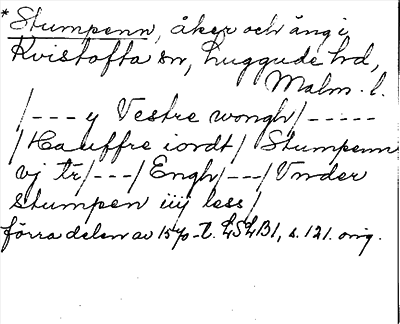 * Stumpenn, åker och äng i
Kvistofta sn, Luggude hd,
Malm. l.
/--- y Vestre wongh/-----
/Hauffre iordt/ Stumpenn
vj tr/---/Engh/---/Vnder
Stumpen iiij less/
förra delen av 1570-t. LSLB1, s. 121. orig.